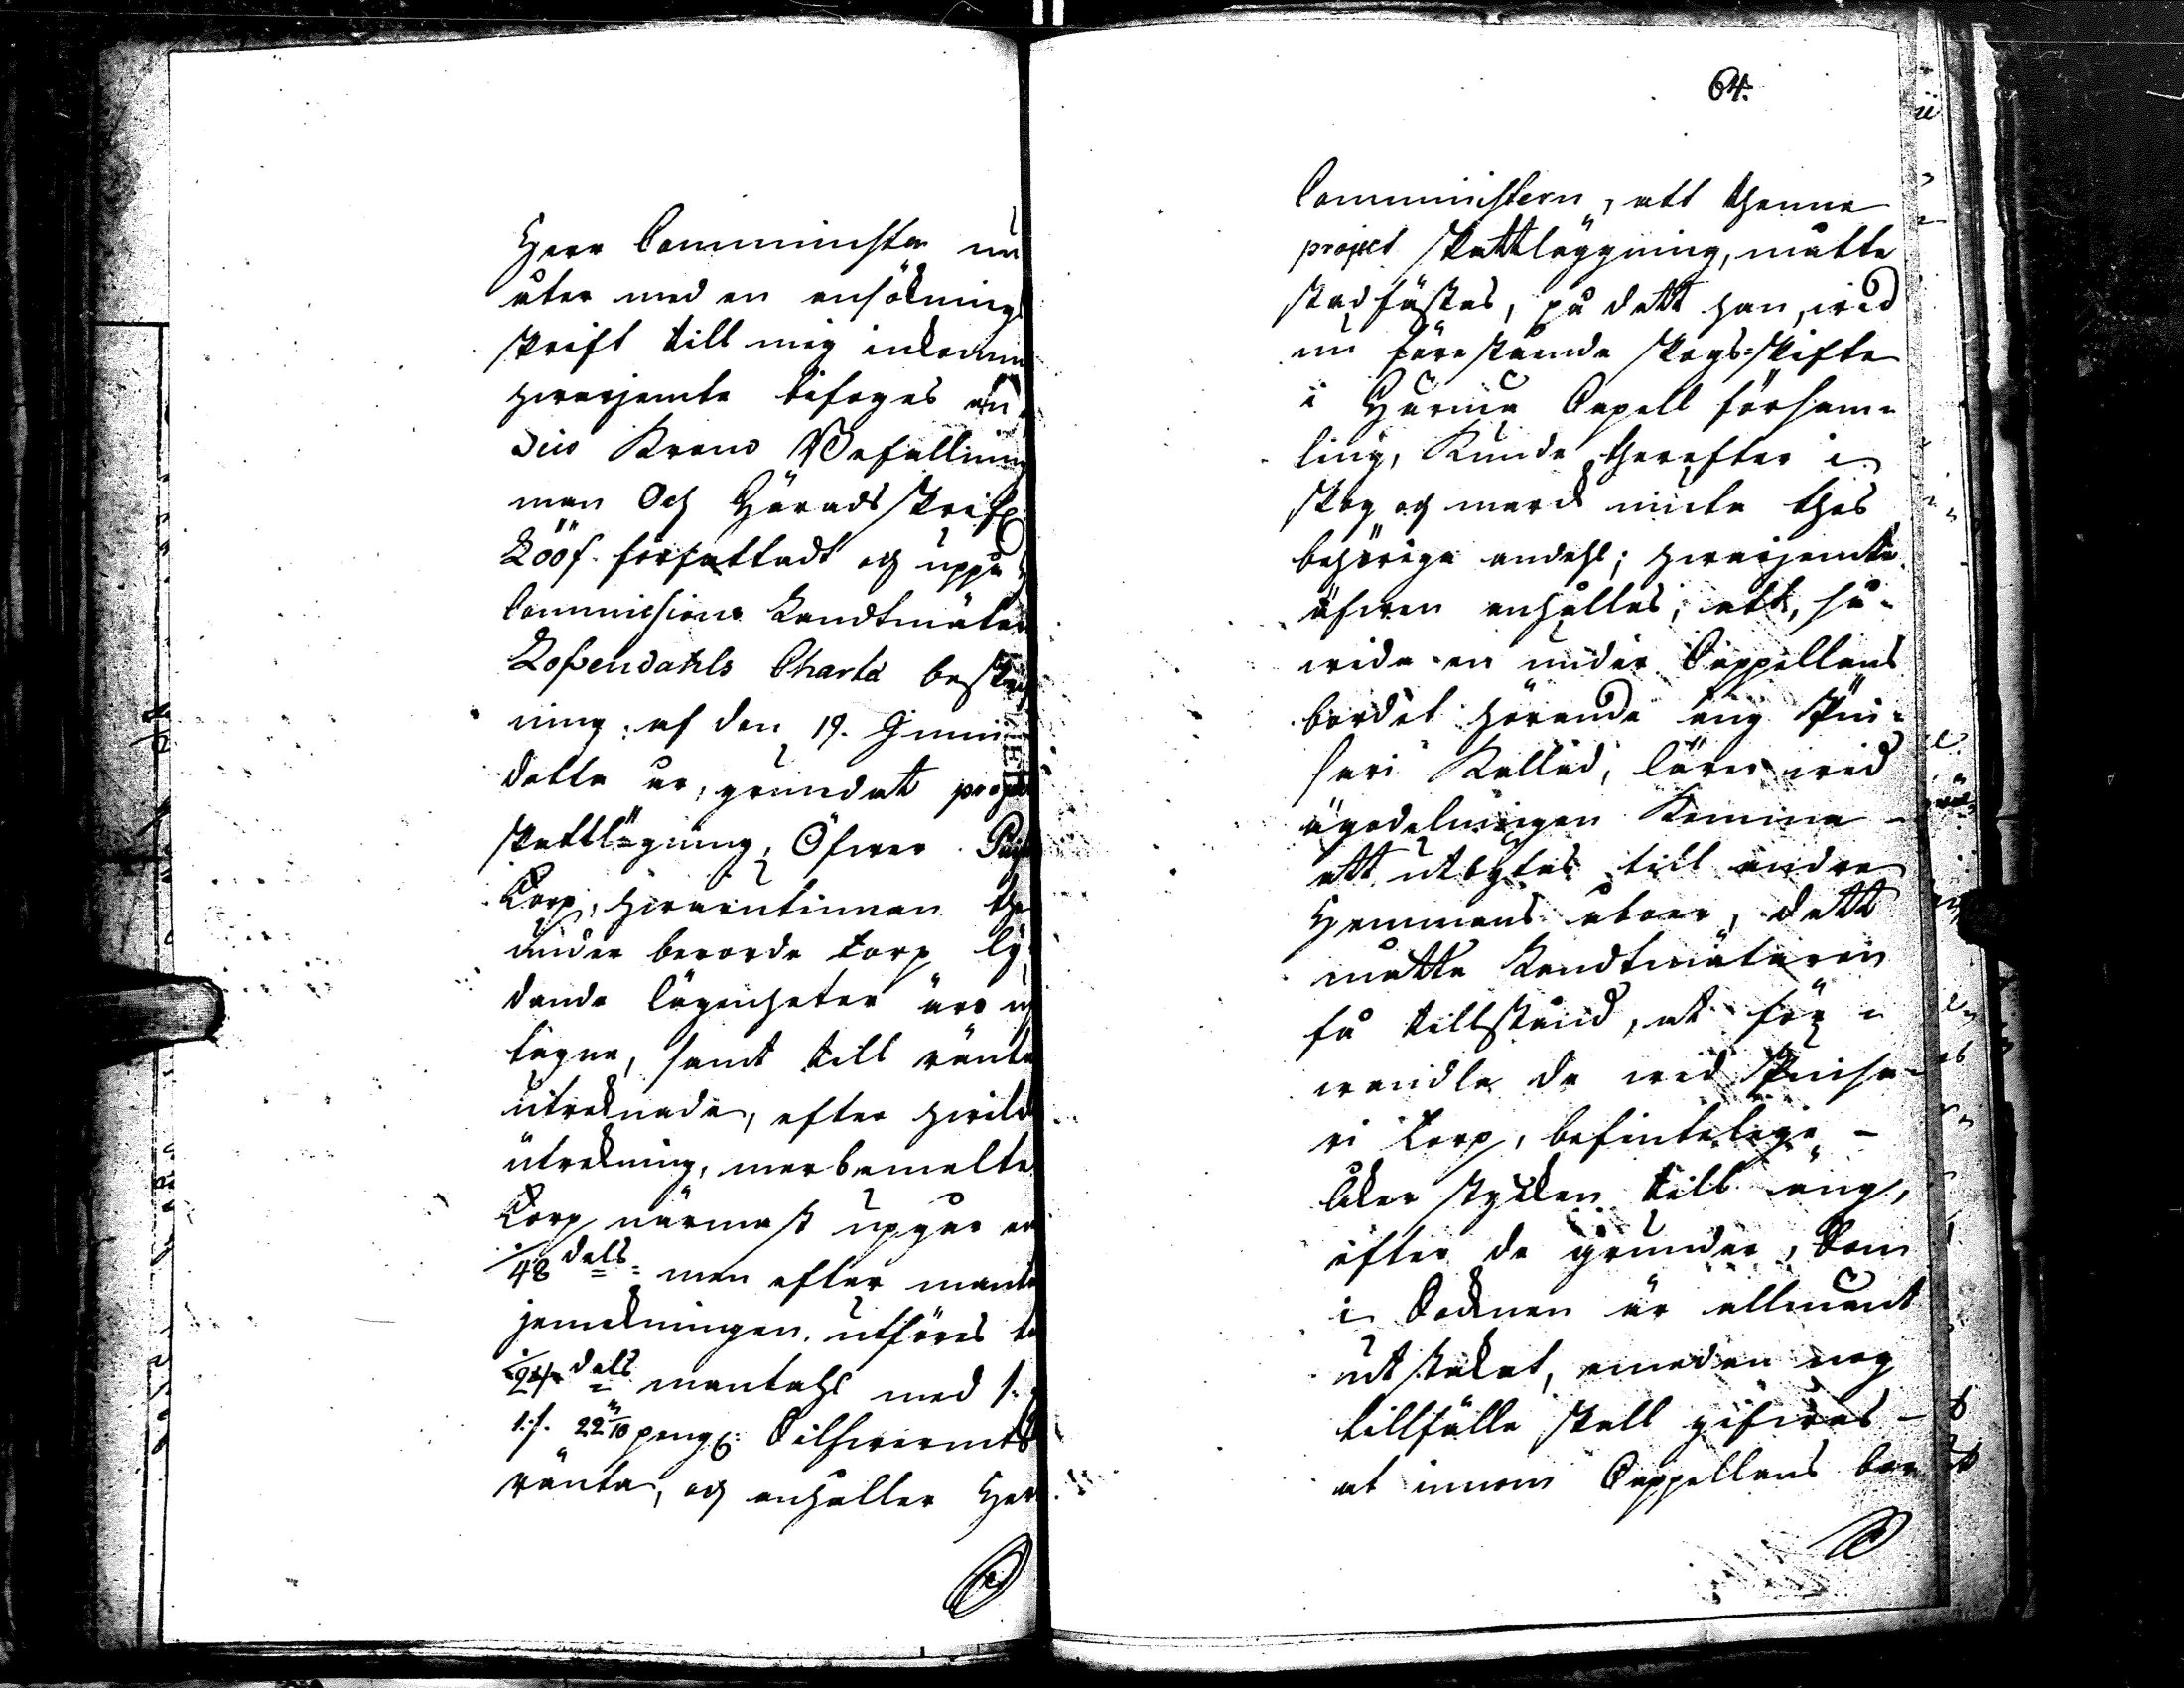 Herr Comminister nu
åter med en ansöknings
skrift till mig inkommi
hwarjemte bifoges en
Krono Befallning
man Och Härads Skrif:
Lööf författadt och uppå
Commissions Landtmäter
Lossendahls Charta beskrif
ning af den 19. Junii
detta år, grundat project
skattlägning, Öfwer
Torp, hwarutinnan the
under berörde torp ly
dande lägenheter äro up
tagne, samt till ränta
uträknade, efter hwilk
uträkning, merbemelte
Torp närmast upgår en
1/48 dels men efter mantals
jemckningen utföres t
1/24 dels mantahl med 1.
1:s. 22 /10 peng: Silfwermts
ränta, och anhåller Her
64.
Comministern, att thenne
project skattläggning, måtte
stadfästas, på dett han, wid
nu förestående skogs-skifte
i Capell försam-
ling, Kunde therefter i
skog och marck niuta thes
behörige andehl; hwarjemte
äfwen anhålles, att, så-
wida en under Cappellans
bordet hörande äng Pui-
sari Kallad, lärer wid
ägodelningen Komma
att utbytas till andre
Hemmans åboer, dett
måtte Landtmätaren
få tillstånd, at för-
wandla de wid Puisa-
ri torp, befintelige
åker stycken till äng,
efter de grunder, som
i Socknen är allmänt
utstakat, emedan nog
tillfälle skall gifwas
at innom Cappellans bor